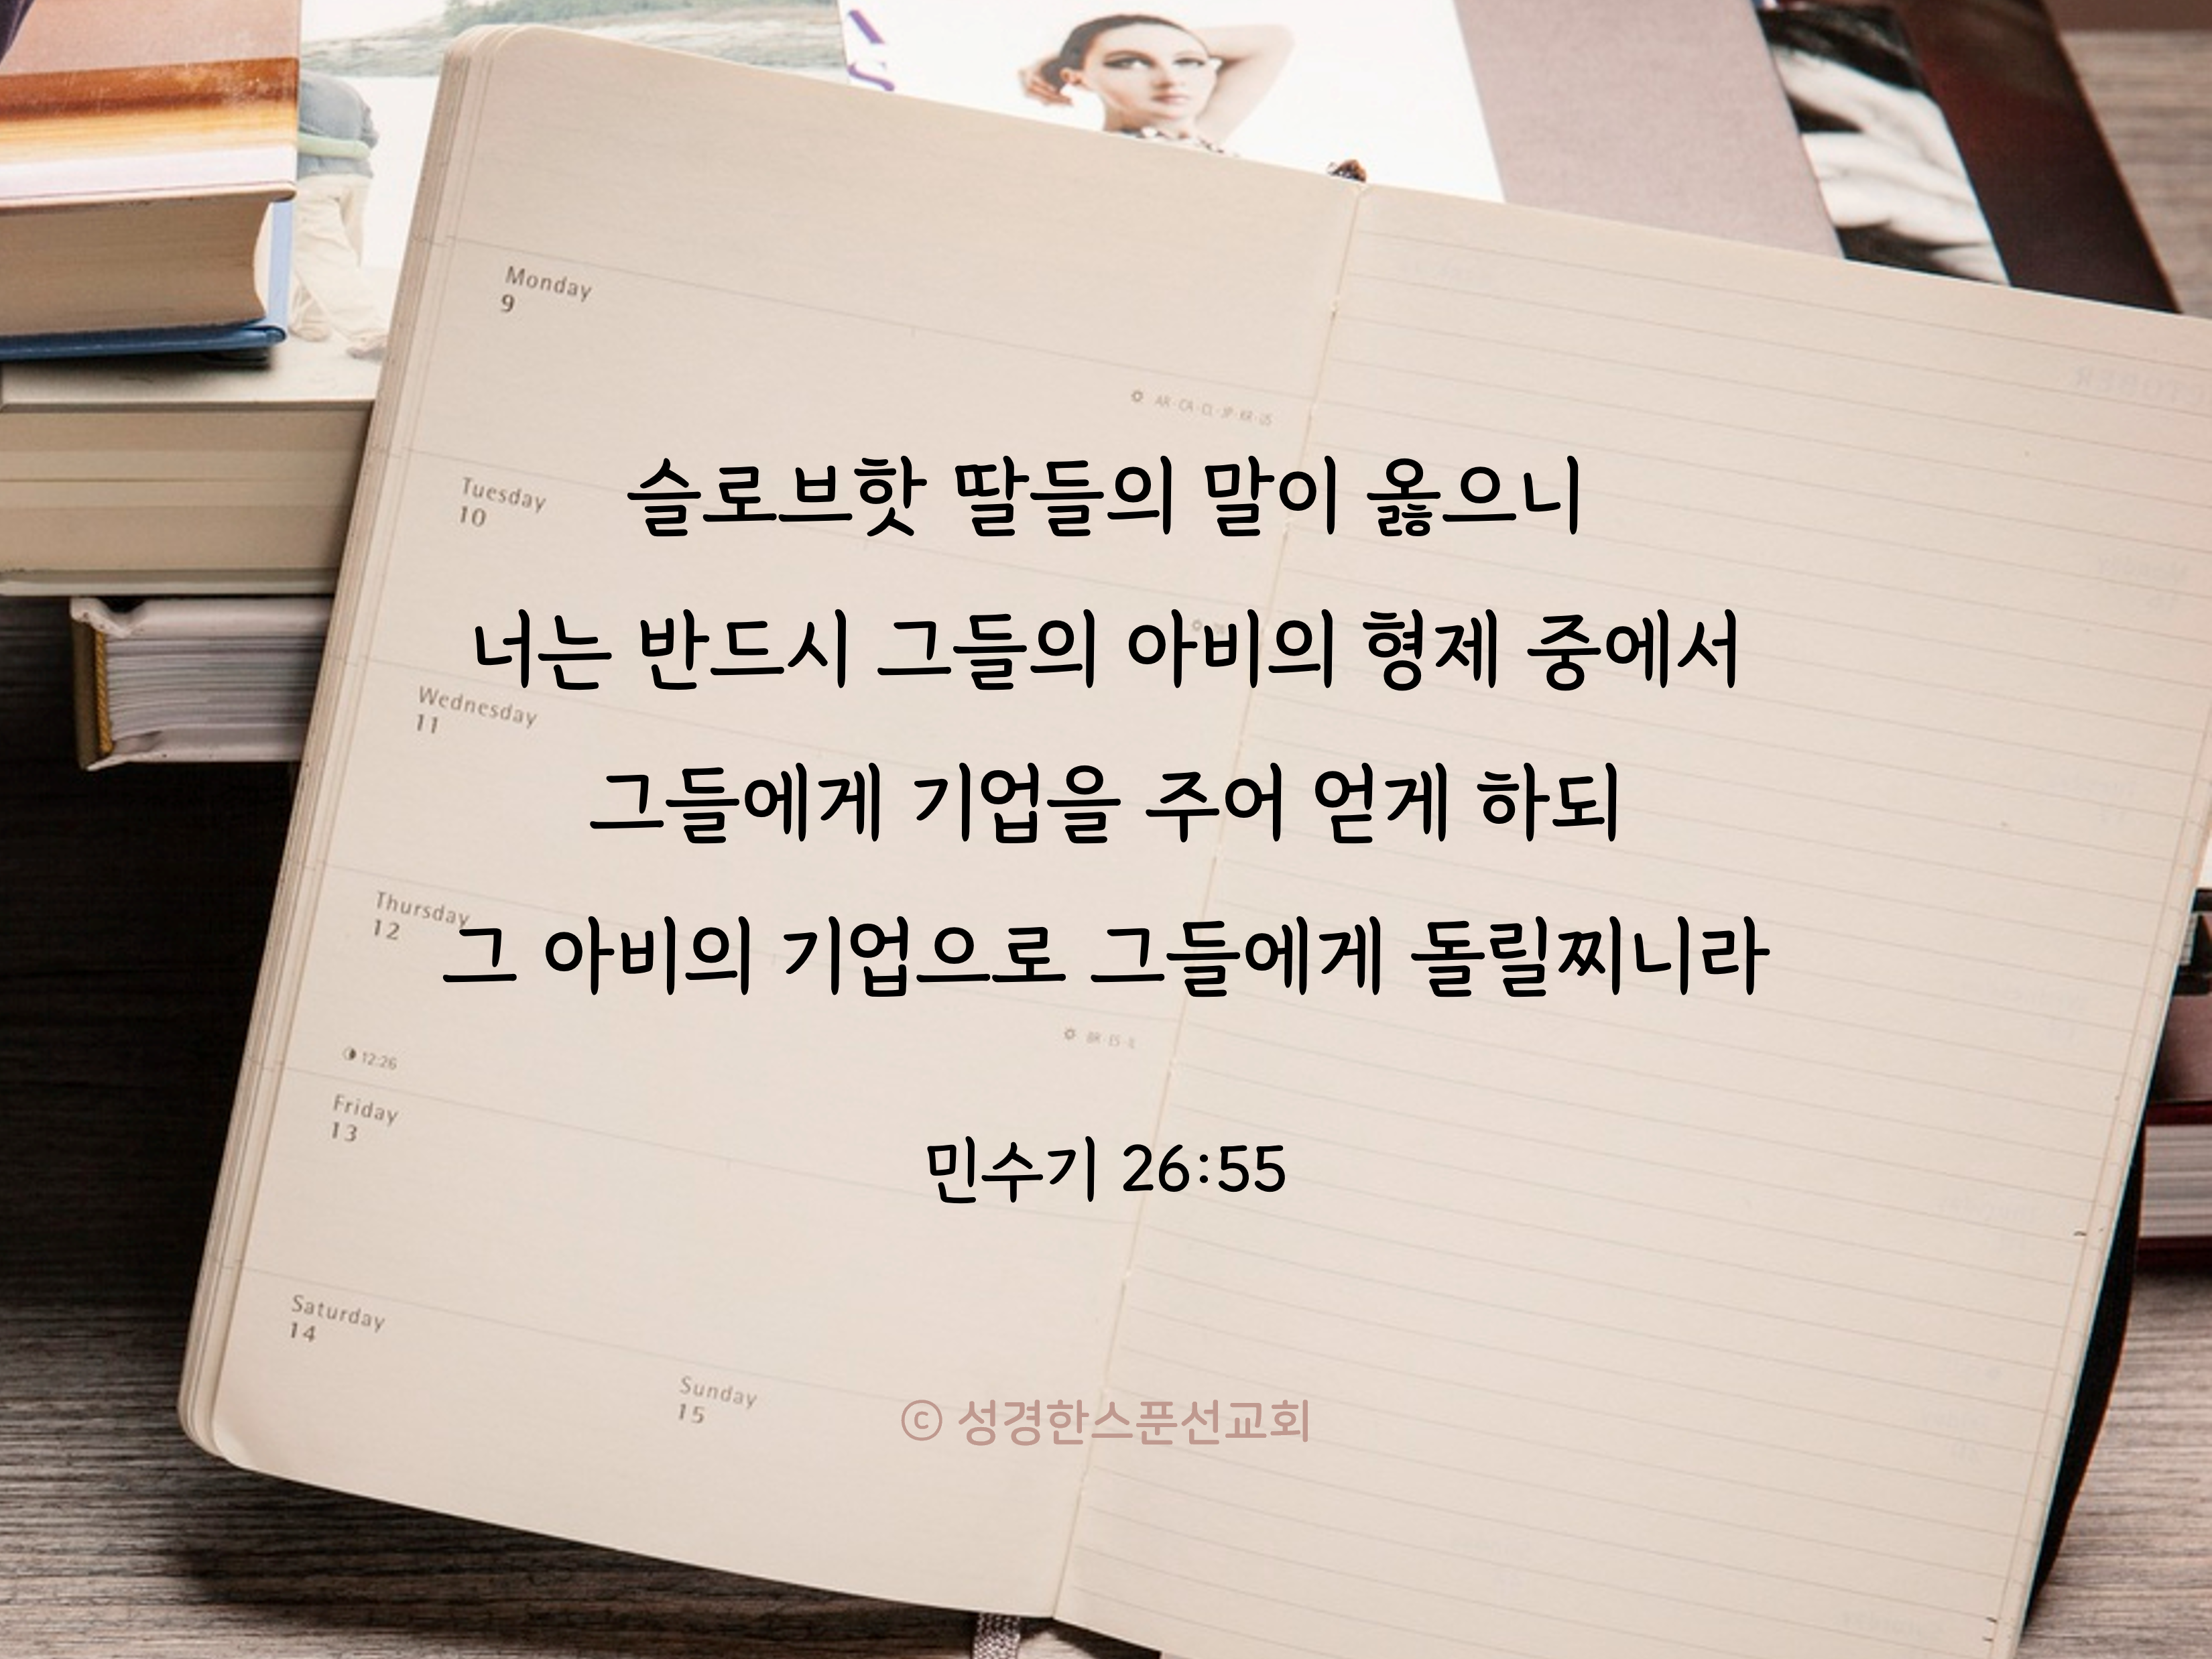 Monday
9
AR·CA·CL·JP·KR·US
Tuesday
10
슬로브핫 딸들의 말이 옳으니
너는 반드시 그들의 아비의 형제 중에서
Wednesday
11
그들에게 기업을 주어 얻게 하되
Thursday
12
그 아비의 기업으로 그들에게 돌릴찌니라
BR·ES·IL
12:26
Friday
13
민수기 26:55
Saturday
14
Sunday
15
© 성경한스푼선교회